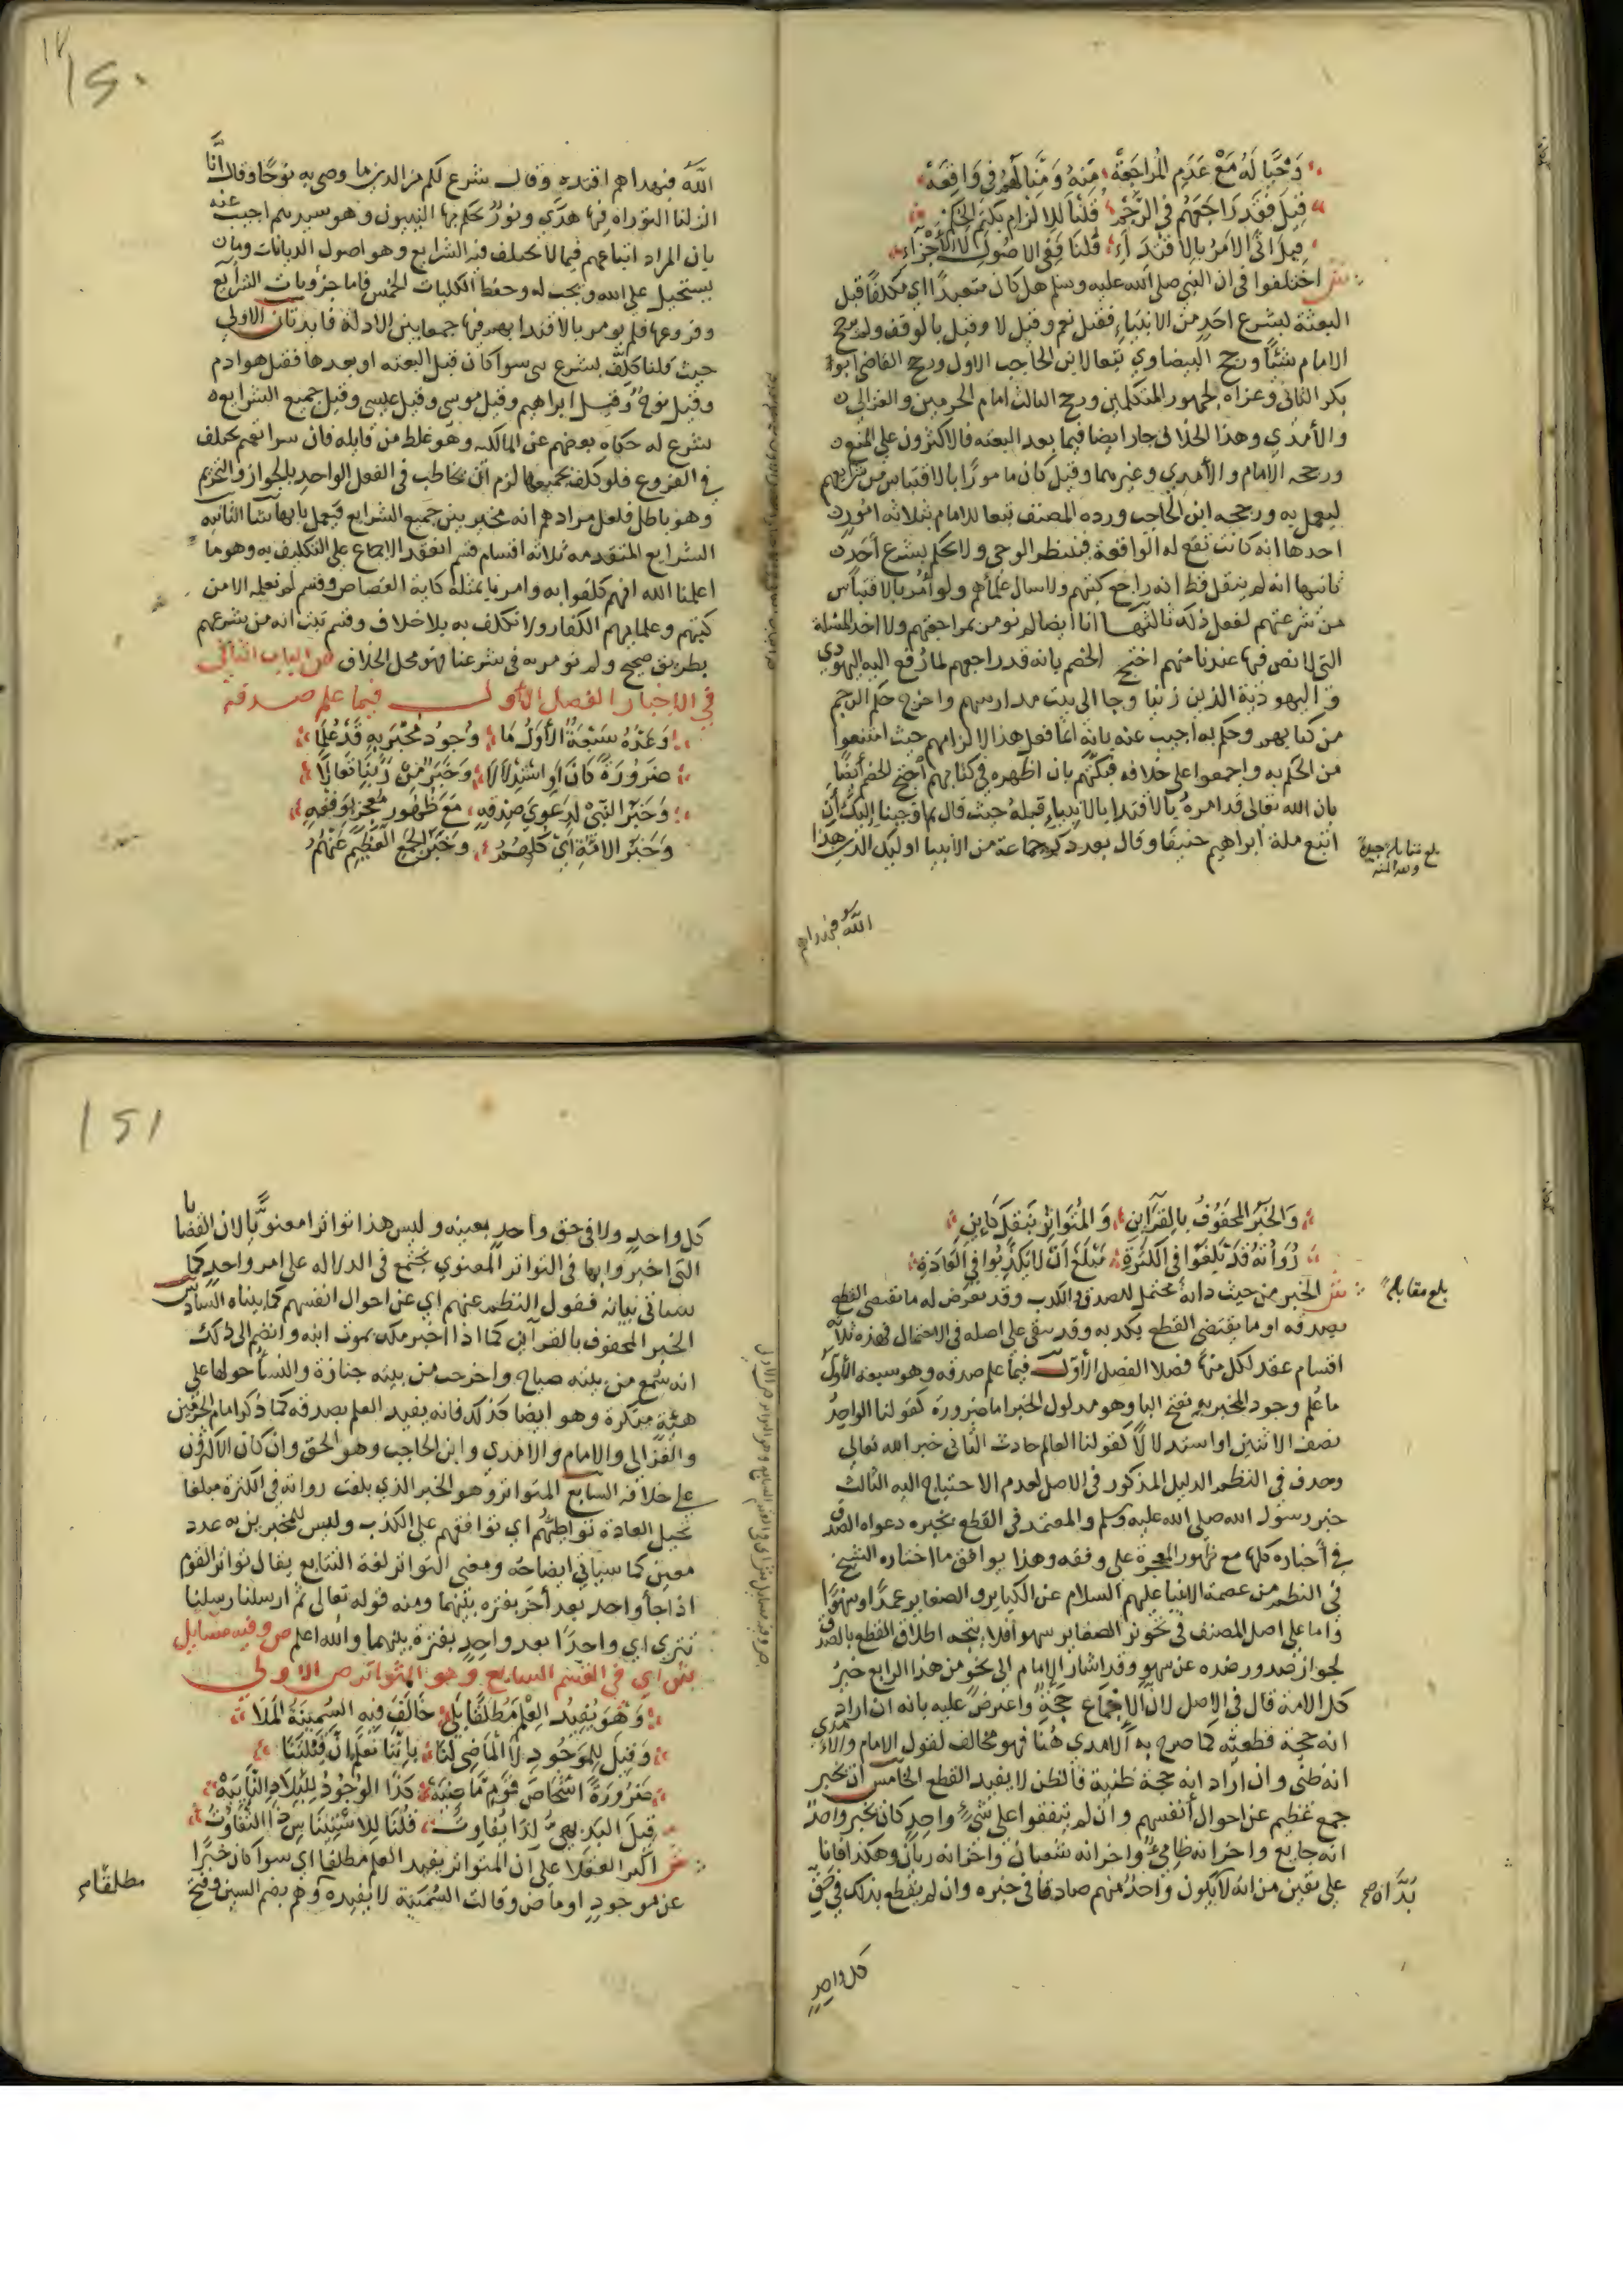 وَحْيًا لَهُ مَعْ عَدَمِ الْمُرَاجَعَهْ مِنْهُ وَمِنَّا لَهُمُ فِي وَاقِعَهْ
قِيلَ فَقَدْ رَاجَعَهُمْ فِي الرَّجْمِ قُلْنَا لِلالْزَامِ بِكَتْمِ الْحُكْمِ
قِيلَ أتَى الأمْرُ بِالاقْتِدَاءِ قُلْنَا فَفِي الاصُولِ لَا الأجْزَاءِ
ش اختلفوا في ان النبي صلى الله عليه وسلم هل كان متعبدا اي مكلفا قبل
البعثة بشرع احد من الانبياء فقيل نعم وقيل لا وقيل بالوقف ولم يرجح
الامام شيئا ورجح البيضاوي تبعا لابن الحاجب الاول ورجح القاضي ابو
بكر الثاني وعزاه لجمهور المتكلمين ورجح الثالث امام الحرمين والغزالي
والآمدي وهذا الخلاف جار ايضا فيما بعد البعثه فالاكثرون علي المنع
ورجحه الامام والآمدي وغيرهما وقيل كان مامورا بالاقتباس من شرايعهم
ليعمل به ورجحه ابن الحاجب ورده المصنف تبعا للامام بثلاثه امور
احدها انه كانت تقع له الواقعة فينتظر الوحي ولا يحكم بشرع أحد
ثانيها انه لم ينقل قط انه راجع كتبهم ولا سال علماهم ولو أمر بالاقتباس
من شرعتهم لفعل ذلك ثالثها انا ايضا لم نومر بمراجعتهم ولا اخذ المسئلة
التي لا نص فيها عندنا منهم احتج الخصم بانه قد راجعهم لما رفع اليه اليهودي
واليهوديّة الذين زنيا وجا الى بيت مدارسهم واخرج حكم الرجم
من كتابهم وحكم به اجيب عنه بانه انما فعل هذا لالزامهم حيث امتنعوا
من الحكم به واجمعوا على خلافه فبكتهم بان اظهره في كتابهم احتج الخصم أيضا
بان الله تعالى قد امره بالاقتدا بالانبياء قبله حيث قال ثم اوحينا اليك أن
اتبع ملة ابراهيم حنيفا وقال بعد ذكر جماعة من الانبيا اوليك الذين هدا
الله فبهداهم
الله فبهداهم اقتده وقال شرع لكم من الدين ما وصى به نوحا وقال انّا
انزلنا التوراه فيها هدي ونور يحكم بها النبيون وهو سيدهم اجيب عنه
بان المراد اتباعهم فيما لا يختلف فيه الشرايع وهو اصول الديانات وما
يستحيل على الله ويجب له وحفظ الكليات الخمس فاما جزويات الشرايع
وفروعها فلم يومر بالاقتدا بهم فيها جمعا بين الادلة فايدتان الاولى
حيث قلنا كلّف بشرع نبي سوا كان قبل البعثه او بعدها فقيل هو ادم
وقيل نوح وقيل ابراهيم وقيل موسي وقيل عيسي وقيل جميع الشرايع
شرع له حكاه بعضهم عن المالكيه وهو غلط من قايله فان شرايعهم تختلف
في الفروع فلو كلف بجميعها لزم ان يخاطب في الفعل الواحد بالجواز والتحريم
وهو باطل فلعل مرادهم انه مخير بين جميع الشرايع فيعمل بايها شا الثانيه
الشرايع المتقدمه ثلاثه اقسام قسم انعقد الاجماع على التكليف به وهو ما
اعلمنا الله انهم كلفوا به وامرنا بمثله كاية القصاص وقسم لم نعلمه الا من
كتبهم وعلمايهم الكفار ولا نكلف به بلا خلاف وقسم ثبت انه من شرعهم
بطريق صحيح ولم نومر به في شرعنا فهو محل الخلاف ص الباب الثاني
في الاخبار الفصل الأول فيما علم صدقه
وَعَدُّهُ سَبْعَةٌ الأوَّلُ مَا وُجُودُ مُخْبَرٍ بِهِ قَدْ عُلِمَا
ضَرُورَةً كَانَ أوِ اسْتِدْلَالَا وَخَبَرٌ مِنْ رَبِّنَا تَعَالَى
وَخَبَرُ النَّبِيْ لِدَعْوَي صِدْقِهِ مَعَ ظُهُورِ مُعْجِزٍ بِوَفْقِهِ
وَخَبَرُ الامَّةِ أيْ كُلِّهُمُ وَخَبَرُ الجَمْعِ الْعَظِيمِ عَنْهُمُ
وَالخَبَرُ الْمَحْفُوفُ بِالْقَرَايِنِ وَالْمُتَوَاتِرْ بِنَقْلِ كَايِنِ
رُوَاتُهُ قَدْ بَلَغُوا فِي الْكَثْرَةِ مَبْلَغَ أنْ لَا يَكْذِبُوا فِي الْعَادَةِ
بلغ مقابلة
ش الخبر من حيث ذاته محتمل للصدق والكذب وقد يعرض له ما يقتضي القطع
بصدقه او ما يقتضي القطع بكذبه وقد يبقي على اصله في الاحتمال فهذه ثلاثه
اقسام عقد لكل منها فصلا الفصل الأول فيما علم صدقه وهو سبعه الأول
ما علم وجود المخبر به بفتح البا وهو مدلول الخبر اما ضرورة كقولنا الواحد
نصف الاثنين او استدلالا كقولنا العالم حادث الثاني خبر الله تعالى
وحذف في النظم الدليل المذكور في الاصل لعدم الاحتياج اليه الثالث
خبر رسول الله صلى الله عليه وسلم والمعتمد في القطع بخبره دعواه الصدق
في أخباره كلها مع ظهور المعجزة على وفقه وهذا يوافق ما اختاره الشيخ
في النظم من عصمة الانبيا عليهم السلام عن الكباير والصغاير عمدا وسهوا
واما على اصل المصنف في تجويز الصغاير سهوا فلا يتجه اطلاق القطع بالصدق
لجواز صدور ضده عن سهو وقد اشار الإمام الى نحو من هذا الرابع خبر
كل الامة قال في الاصل لان الاجماع حجة واعترض عليه بانه ان اراد
انه حجة قطعيه كما صرح به الآمدي هنا فهو مخالف لقول الامام والآمدي
انه ظني وان اراد انه حجة ظنية فالظن لا يفيد القطع الخامس ان يخبر
جمع عظيم عن احوال أنفسهم وان لم يتفقوا على شيء واحد كان يخبر واحد
انه جايع واخر انه ظامي واخر انه شبعان واخر انه ريان وهكذا فانا
على يقين من انه لا يكون واحد منهم صادقا في خبره وان لم يقطع بذلك في حق
كل واحد
كل واحد ولا في حق واحد بعينه وليس هذا تواترا معنويا لان القضايا
التي اخبروا بها في التواتر المعنوي تجتمع في الدلاله على امر واحد كما
سياتي بيانه فقول النظم عنهم اي عن احوال انفسهم كما بيناه السادس
الخبر المحفوف بالقرآين كما اذا اخبر ملك بموت ابنه وانضم الى ذلك
انه سُمع من بيته صياح واخرجت من بيته جنازة والنسا حولها على
هيئة منكرة وهو ايضا كذلك فانه يفيد العلم بصدقه كما ذكر امام الحرمين
والغزالي والامام والآمدي وابن الحاجب وهو الحق وان كان الأكثرون
على خلافه السابع المتواتر وهو الخبر الذي بلغت رواته في الكثرة مبلغا
تحيل العادة تواطئهم اي توافقهم على الكذب وليس للمخبرين به عدد
معين كما سياتي ايضاحه ومعنى التواتر لغة التتابع يقال تواتر القوم
اذا جا واحد بعد آخر بفتره بينهما ومنه قوله تعالى ثم ارسلنا رسلنا
تتري اي واحدا بعد واحد بفترة بينهما والله اعلم ص وفيه مسايل
ش اي في القسم السابع وهو المتواتر ص الاولى
وَهْوَ يُفِيدُ الْعِلْمَ مُطْلَقًا بَلَى خَالَفَ فِيهِ السُّمَنِيَّةُ الْمَلَا
وَقِيلَ لِلْمَوْجُودِ لَا الْمَاضِي لَنَا بِأنَّنَا نَعْلَمُ أنَّ قَبْلَنَا
ضَرُورَةً اشْخَاصَ قَوْمٍ مَاضِيَهْ كَذَا الْوُجُودُ لِلْبِلَادِ النَّايِيَهْ
قِيلَ الْبَدِيهِيُّ لِذَا يُفَاوِتُ قُلْنَا لِلاسْتِينَاسِ ذَا التَّفَاوُتُ
ش اكثر العقلا على ان المتواتر يفيد العلم مطلقا اي سوا كان خبرا
عن موجود او ماض وقالت السُّمَنيّة لا يفيده وهم بضم السين وفتح